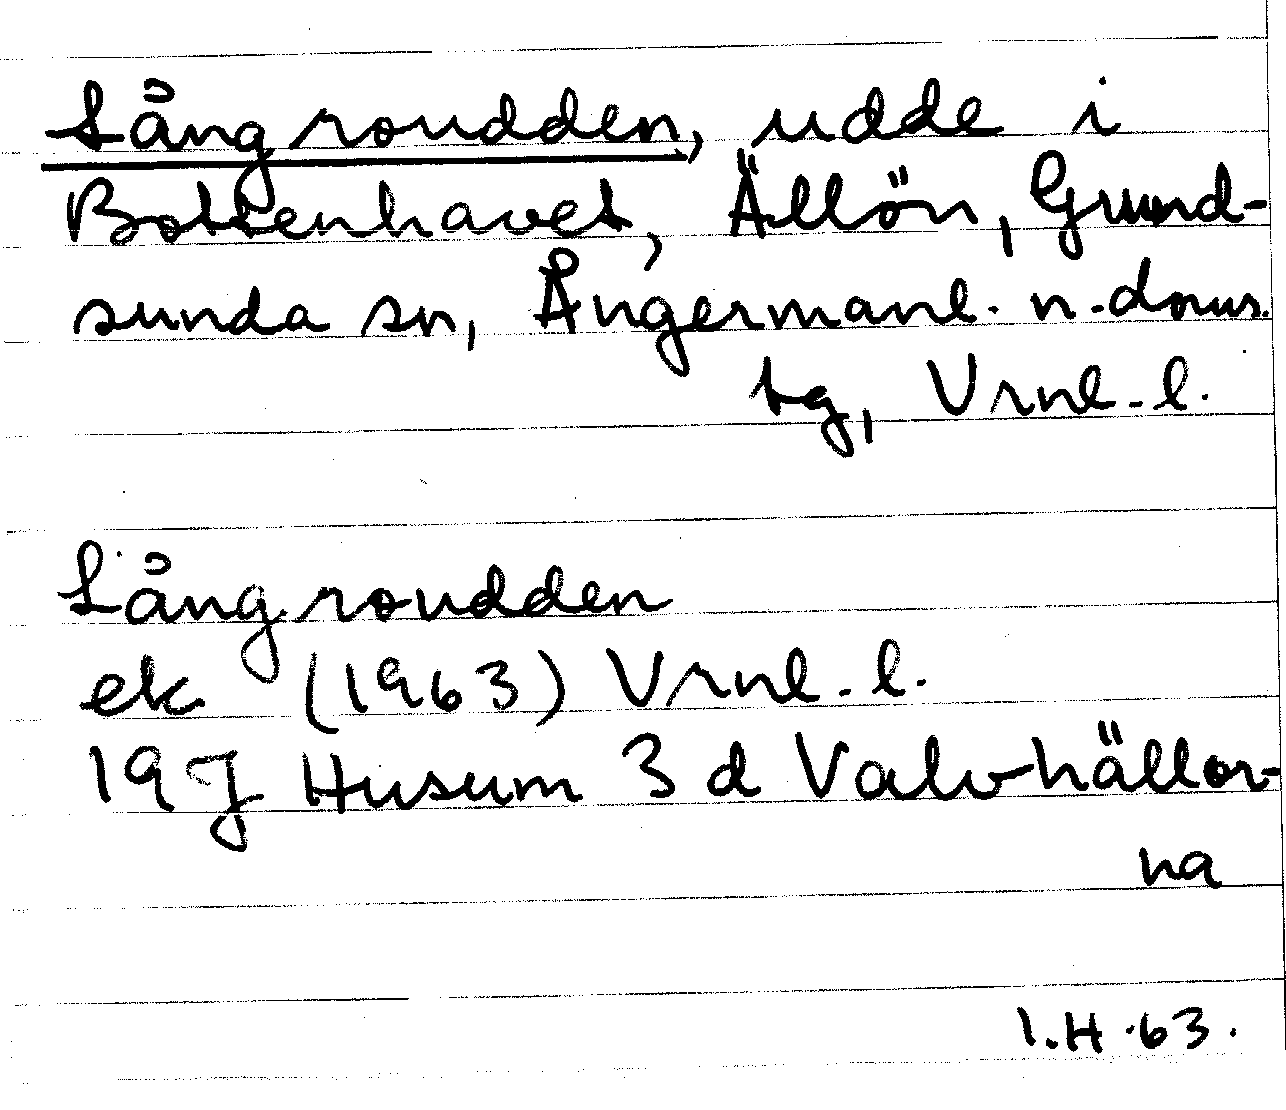 Långroudden, udde i
Bottenhavet, Ällön, Grund-
sunda sn, Ångermanl. n. doms.
tg, Vrnl. l.
Långroudden
ek (1963) Vrnl. l.
19J Husum 3 d Valvhällor-
na
I.H. 63.